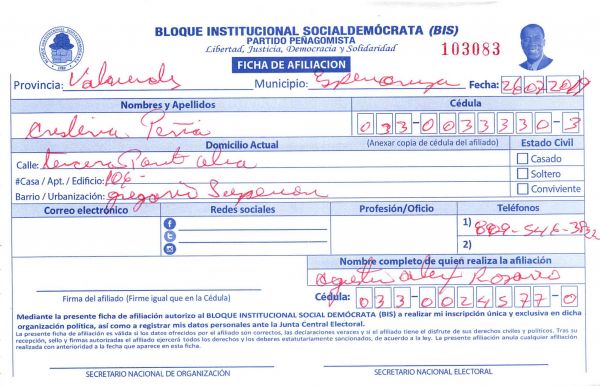 BLOQUE INSTITUCIONAL SOCIALDEMÓCRATA (BIS)
PARTIDO PEÑAGOMISTA
Libertad, Justicia, Democracia y Solidaridad
103083
FICHA DE AFILIACION
Provincia: Valverde Municipio: Esperanza Fecha: 26/02/2019
Nombres y Apellidos Cédula
Peña 033-0033330-3
Domicilio Actual (Anexar copia de cédula del afiliado) Estado Civil
Calle: tercera Casado
#Casa / Apt. / Edificio: 106- Soltero
Barrio / Urbanización: gregorio Conviviente
Correo electrónico Redes sociales Profesión/Oficio Teléfonos
1) 809-546-3832
2)
Nombre completo de quien realiza la afiliación
Rosario
Firma del afiliado (Firme igual que en la Cédula) Cédula: 033-0024577-0
Mediante la presente ficha de afiliación autorizo al BLOQUE INSTITUCIONAL SOCIAL DEMÓCRATA (BIS) a realizar mi inscripción única y exclusiva en dicha
organización política, así como a registrar mis datos personales ante la Junta Central Electoral.
La presente ficha de afiliación es válida si los datos ofrecidos por el afiliado son correctos, las declaraciones veraces y si el afiliado tiene el disfrute de sus derechos civiles y políticos. Tras su
recepción, sello y firmas autorizadas el afiliado ejercerá todos los derechos y los deberes estatutariamente sancionados, de acuerdo a la ley. La presente afiliación anula cualquier afiliación
realizada con anterioridad a la fecha que aparece en esta ficha.
SECRETARIO NACIONAL DE ORGANIZACIÓN SECRETARIO NACIONAL ELECTORAL